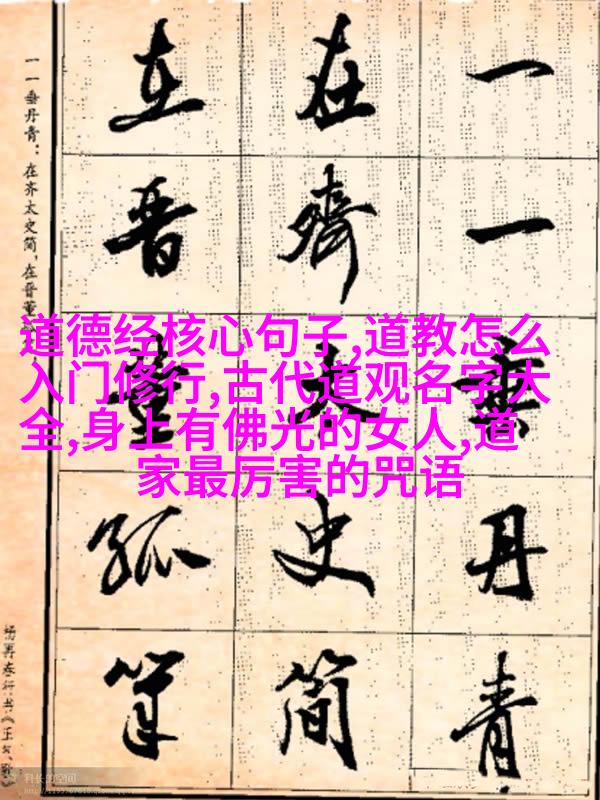 一一垂丹青
在齊太史简
在晋董狐筆
一一垂丹青：在齐太史简，在晋董
杨再春行书《正气歌
道德经核心句子,道教怎么
入门修行,古代道观名字大
全,身上有佛光的女人,道
家最厉害的咒语
科长的空间